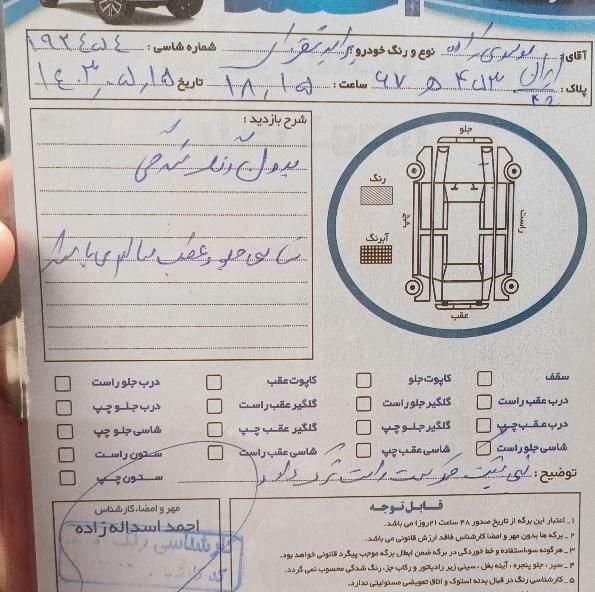 آقای: موسوی زاده نوع و رنگ خودرو: پراید نقره‌ای شماره شاسی: ۱۹۳۴۵۰۴
پلاک: ایران ۴۲ ۴۵۳ ه ۶۷ ساعت: ۱۸,۱۵ تاریخ ۱۴۰۳,۰۵,۱۵
شرح بازدید:
بدون رنگ
شاسی جلو و عقب سالم می باشد
جلو
رنگ
آبرنگ
چپ
راست
عقب
سقف کاپوت جلو کاپوت عقب درب جلو راست
درب عقب راست گلگیر جلو راست گلگیر عقب راست درب جلو چپ
درب عقب چپ گلگیر جلو چپ گلگیر عقب چپ شاسی جلو چپ
شاسی جلو راست شاسی عقب چپ شاسی عقب راست ستون راست
توضیح: سمت راست دارد ستون چپ
مهر و امضاء کارشناس
احمد اسداله زاده
قابل توجه
۱_ اعتبار این برگه از تاریخ صدور ۴۸ ساعت (۲روز) می باشد.
۲_ برگه ها بدون مهر و امضا کارشناس فاقد ارزش قانونی می باشد.
۳_ هرگونه سوءاستفاده و خط خوردگی در برگه ضمن ابطال برگه موجب پیگرد قانونی خواهد بود.
۴_ سپر، جلو پنجره، آینه بغل، سینی زیر رادیاتور و رکاب جز، رنگ شدگی محسوب نمی گردد.
۵_ کارشناسی رنگ در قبال بدنه استوک و اتاق تعویضی مسئولیتی ندارد.